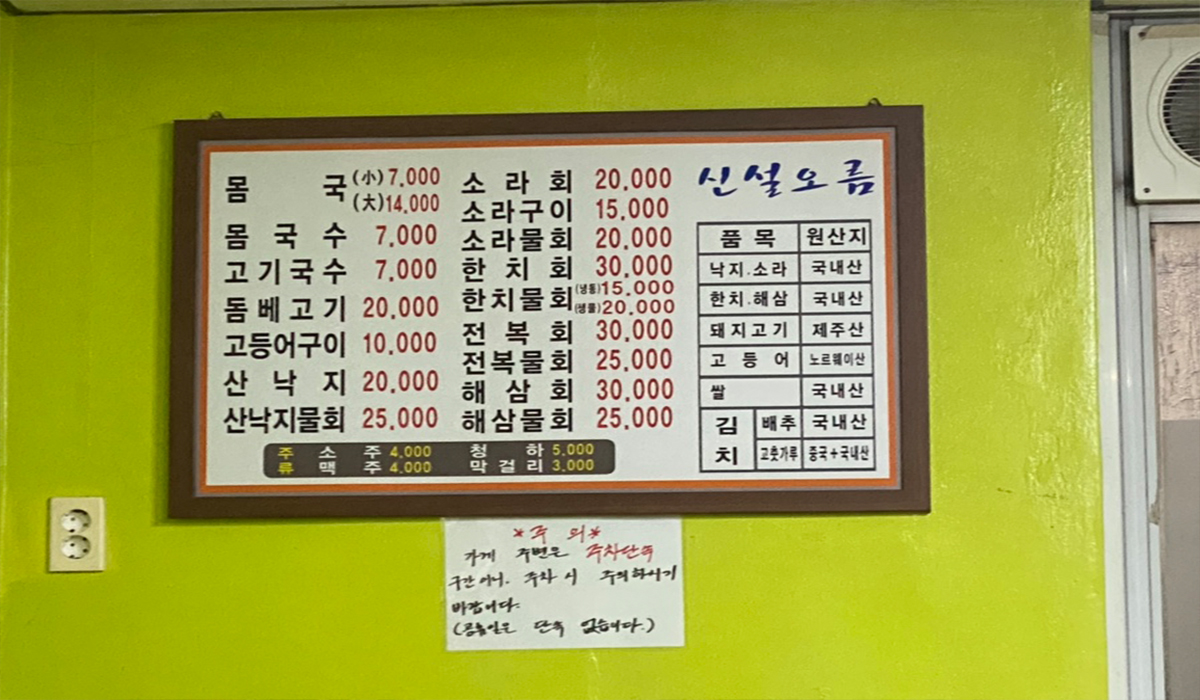 몸 국 (小) 7,000
(大) 14,000
몸 국 수 7,000
고기국수 7,000
돔베고기 20,000
고등어구이 10,000
산 낙 지 20,000
산낙지물회 25,000
소 라 회 20,000
소라구이 15,000
소라물회 20,000
한 치 회 30,000
한치물회 (냉동)15,000
(생물)20,000
전 복 회 30,000
전복물회 25,000
해 삼 회 30,000
해삼물회 25,000
주류
소 주 4,000 청 하 5,000
맥 주 4,000 막걸리 3,000
신설오름
품 목 원산지
낙지.소라 국내산
한치.해삼 국내산
돼지고기 제주산
고 등 어 노르웨이산
쌀 국내산
김치 배추 국내산
고춧가루 중국+국내산
*주 의*
가게 주변은 주차단속
구간이니. 주차 시 주의하시기
바랍니다.
(공휴일은 단속 없습니다.)